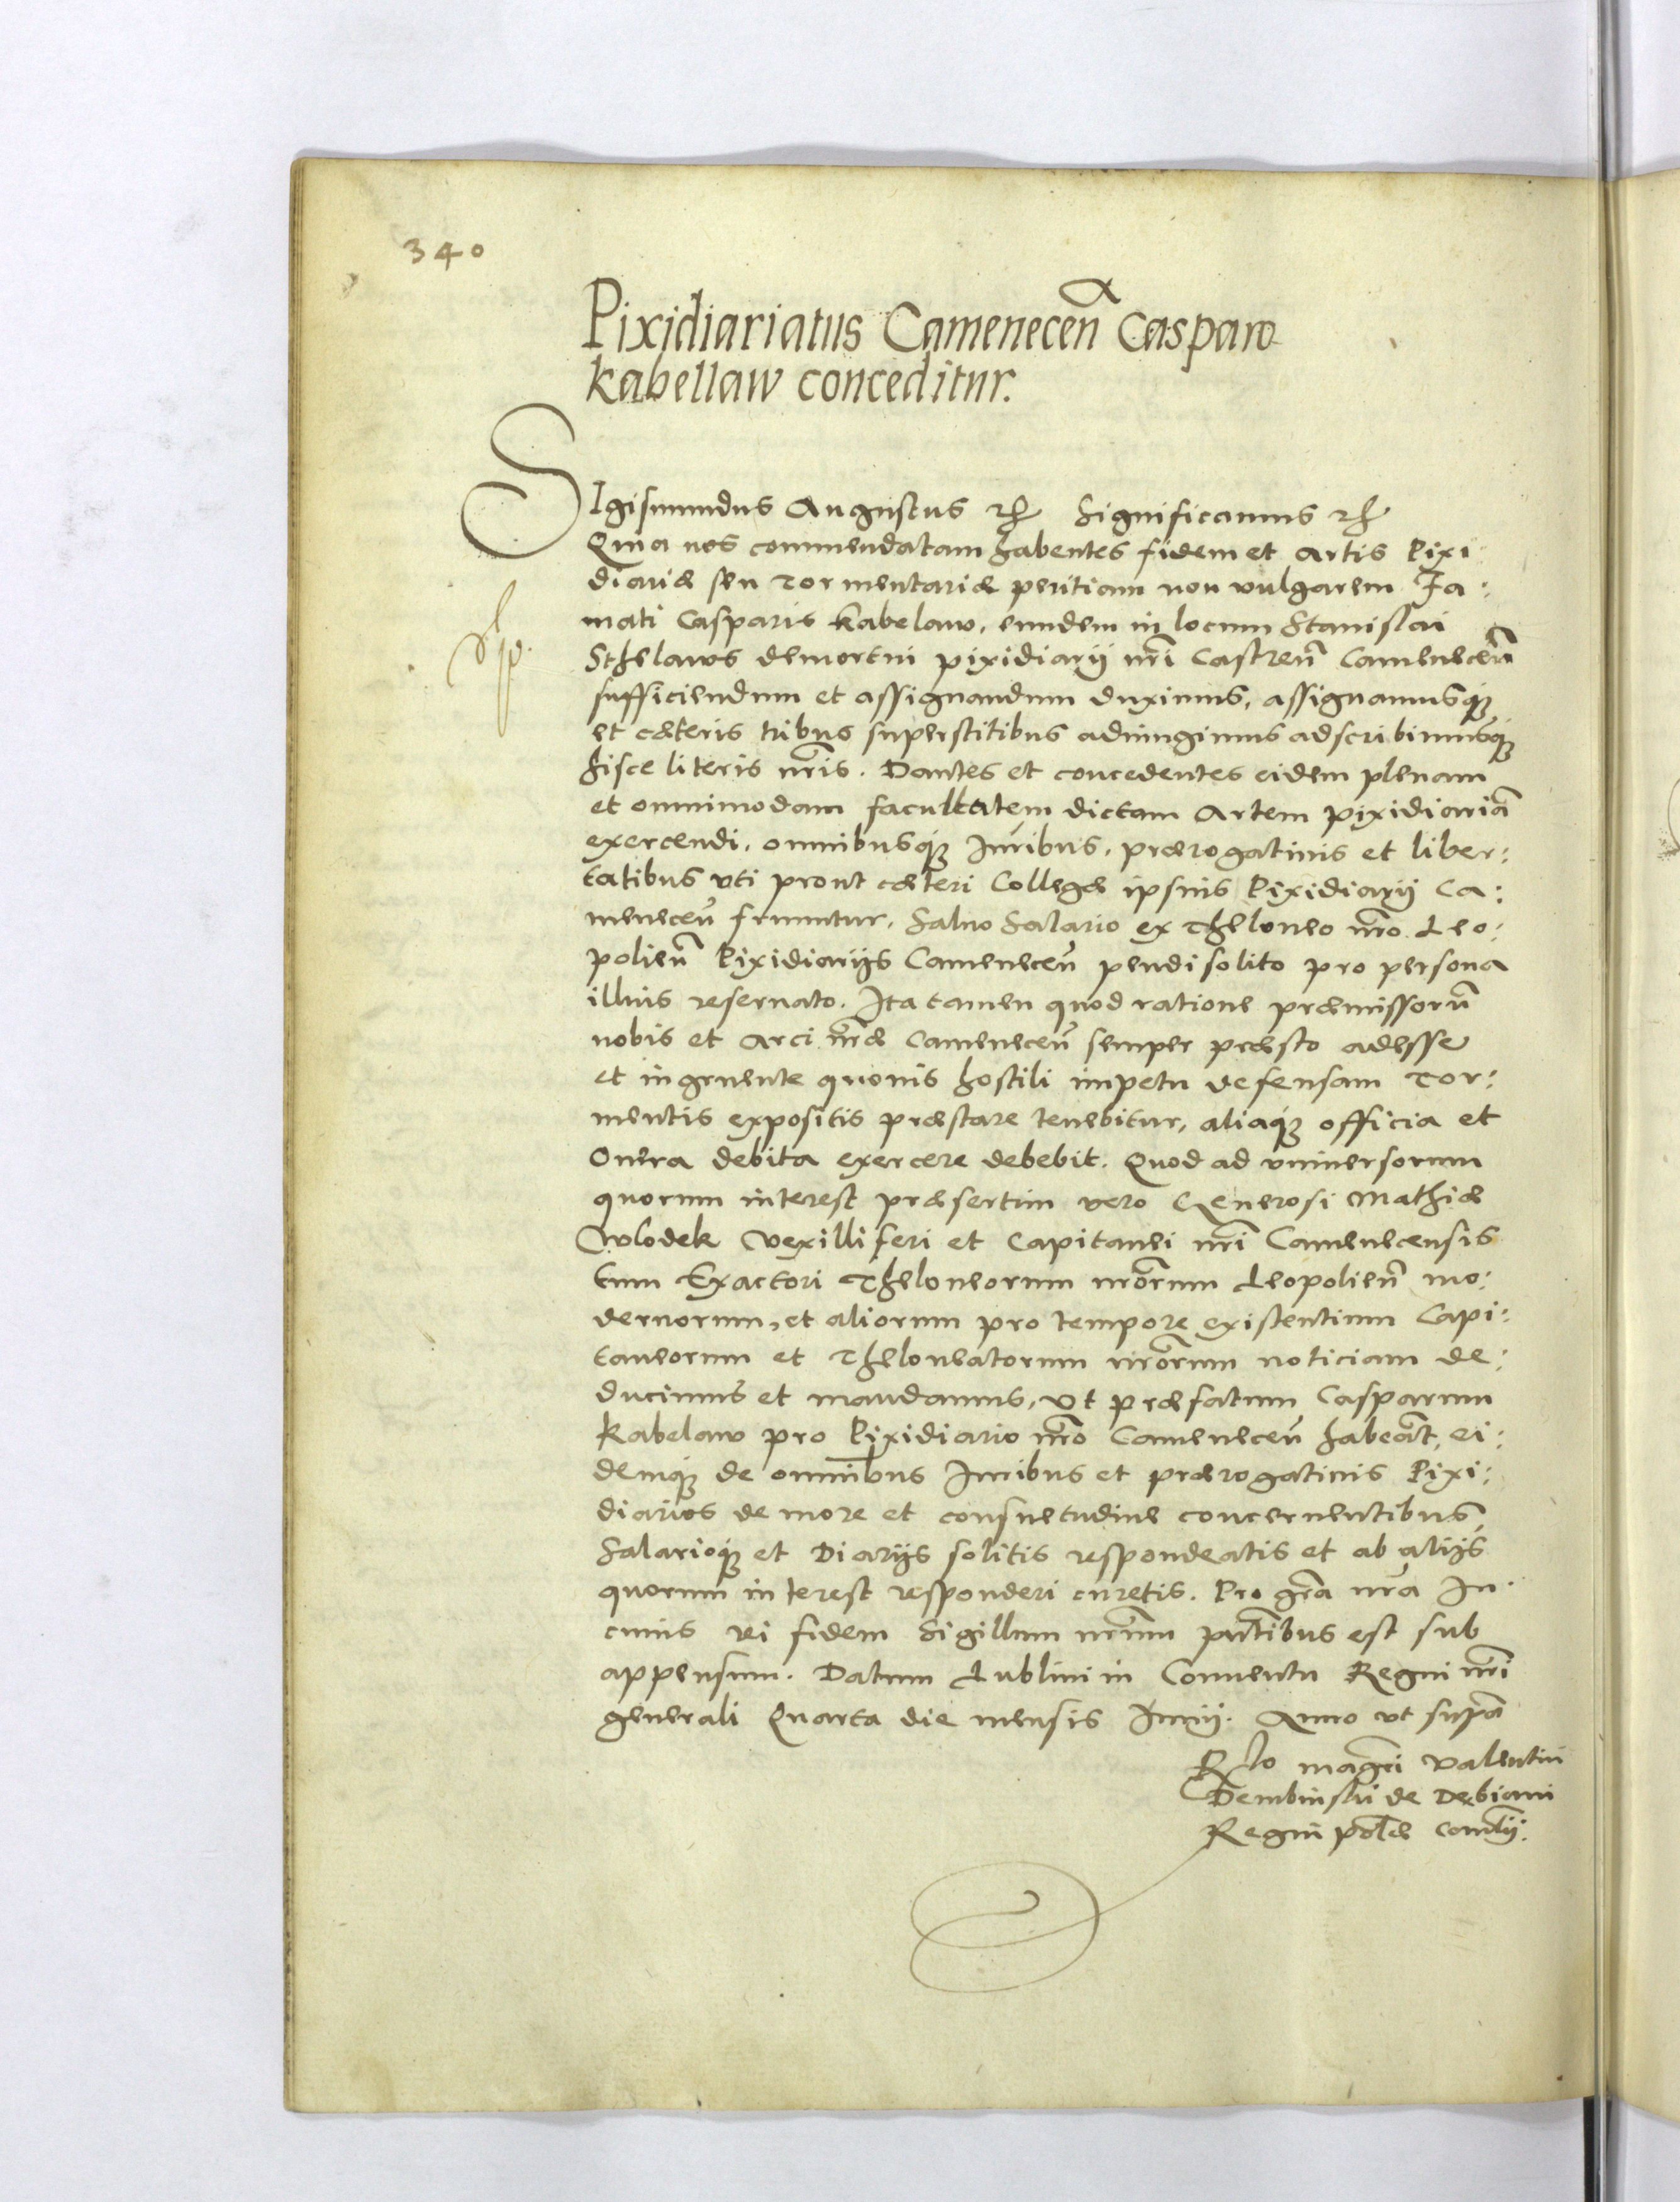 340
Pixidiariatus Camenecen̄ Casparo
kabellaw conceditur.
SIgismundus Augustus etc Significamus etc
Quia nos commendatam habentes fidem et artis Pixi
diariæ seu Tormentariæ peritiam non vulgarem Fa:
mati Casparis Kabelaw, eundem in locum Stanislai
Sthelaws demortui pixidiarij nr̄i Castren̄ Camenecen̄
sufficiendum et assignandum duximus, assignamusq́ꝫ
et cæteris tribus superstitibus adiungimus adscribimusq́ꝫ
hisce literis nr̄is. Dantes et concedentes eidem plenam
et omnimodam facultatem dictam Artem pixidiariā
exercendi, omnibusq́ꝫ Iuribus, prærogatiuis et liber:
tatibus vti prout cæteri Collegæ ipsius Pixidiarij Ca:
menecen̄ fruuntur, Saluo Salario ex Theloneo nr̄o Leo:
polien̄ Pixidiarijs Camenecen̄ pendi solito pro persona
illius reseruato. Ita tamen quod ratione præmissorū
nobis et Arci nr̄æ Camenecen̄ semper præsto adesse
et ingruente quouis hostili impetu defensam Tor:
mentis expositis præstare tenebitur, aliaq́ꝫ officia et
Onera debita exercere debebit. Quod ad vniuersorum
quorum interest præsertim vero Generosi Mathiæ
Wlodek Vexilliferi et Capitanei nr̄i Camenecensis
tum Exactori Theloneorum nr̄orum Leopolien̄ mo:
dernorum, et aliorum pro tempore existentium Capi:
taneorum et Theloneatorum nr̄orum noticiam de:
ducimus et mandamus, Vt præfatum Casparum
Kabelaw pro Pixidiario nr̄o Camenecen̄ habeāt, ei:
demq́ꝫ de omnibus Iuribus et prærogatiuis Pixi:
diarios de more et consuetudine concernentibus,
Salarioq́ꝫ et Diarijs solitis respondeatis et ab alijs
quorum interest responderi curetis. Pro gr̄a nr̄a In
cuius rei fidem Sigillum nr̄um pn̄tibus est sub
appensum. Datum Lublini in Conuentu Regni nr̄i
generali Quarta die mensis Iunij. Anno vt supā
Rlo magci Valentini
Dembinski de Debiani
Regni polæ Canrij.